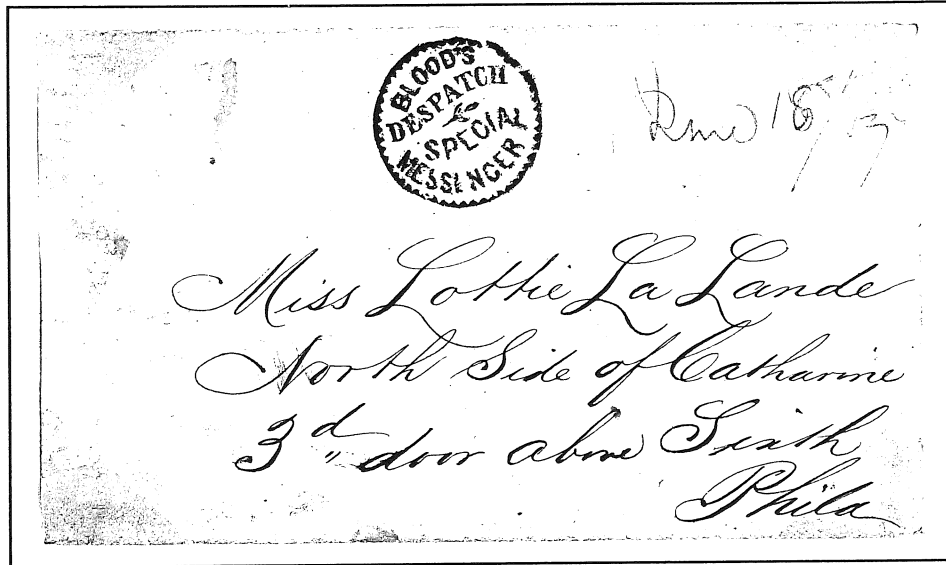 BLOOD'S
DESPATCH
SPECIAL
MESSENGER
18
Miss Lottie La Lande
North Side of Catharine
3d " door above Sixth
Phila